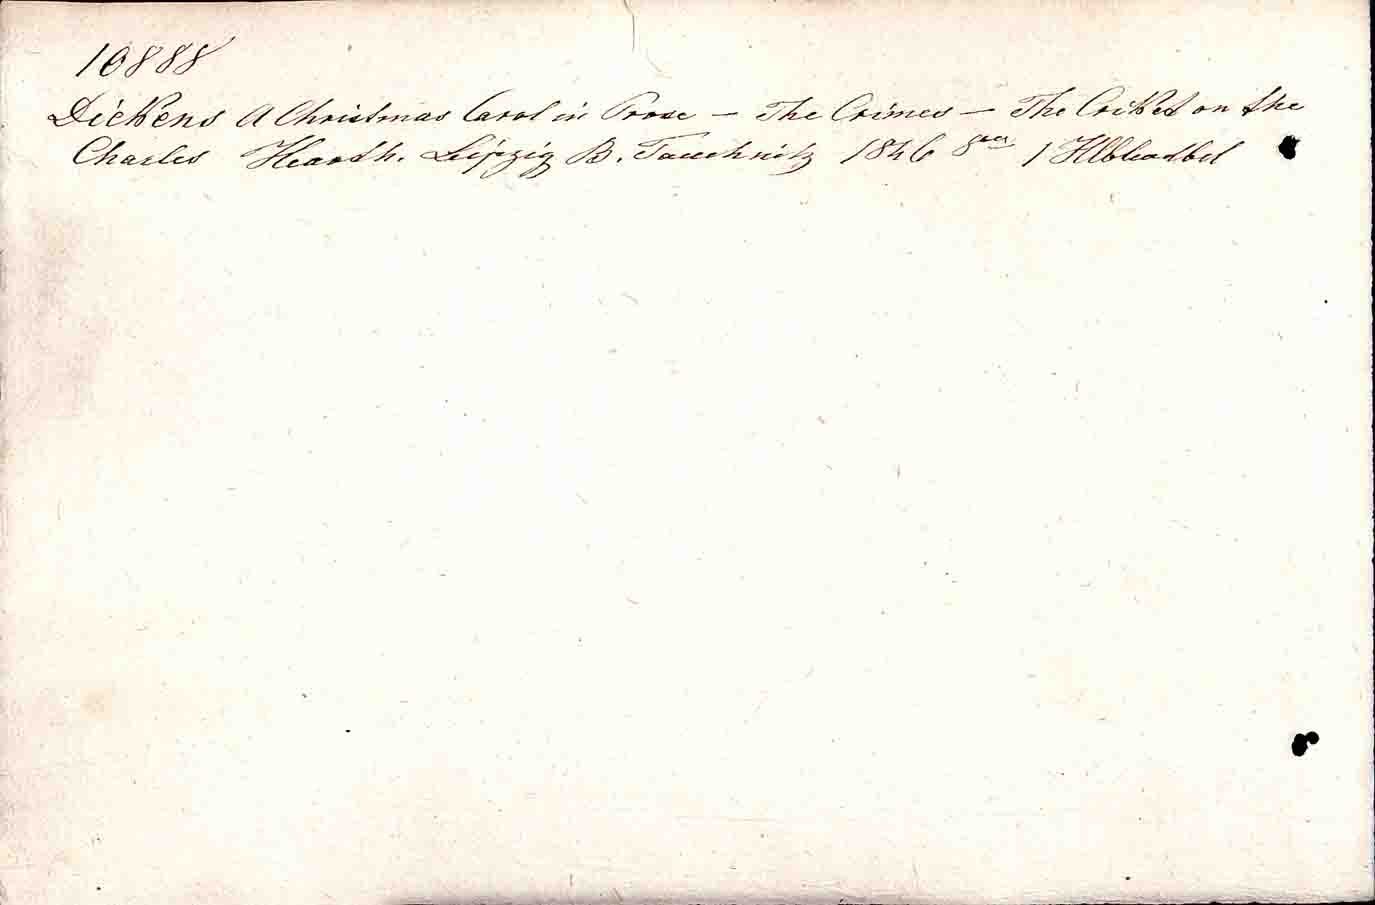 10888
Dickens A Christmas Carol in Prose - The Crimes - The Criket on the
Charles Hearth. Leipzig B. Tauchnitz 1846 8vo 1 Hlbleadbd